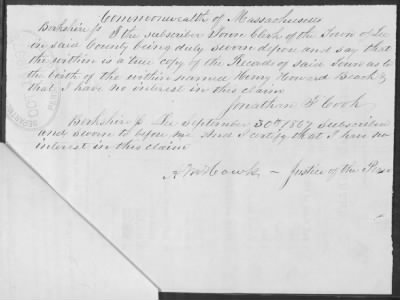 Commonwealth of Massachusetts
Berkshire ss I the subscriber Town Clerk of the Town of Lee
in said County being duly sworn depose and say that
the within is a true copy of the Records of said Town as to
the birth of the within named Henry Howard
that I have no interest in this claim
Jonathan F Cook
Berkshire ss Lee September 30th 1867 Subscribed
and sworn to before me And I certify that I have no
interest in this claim
Justice of the Peace